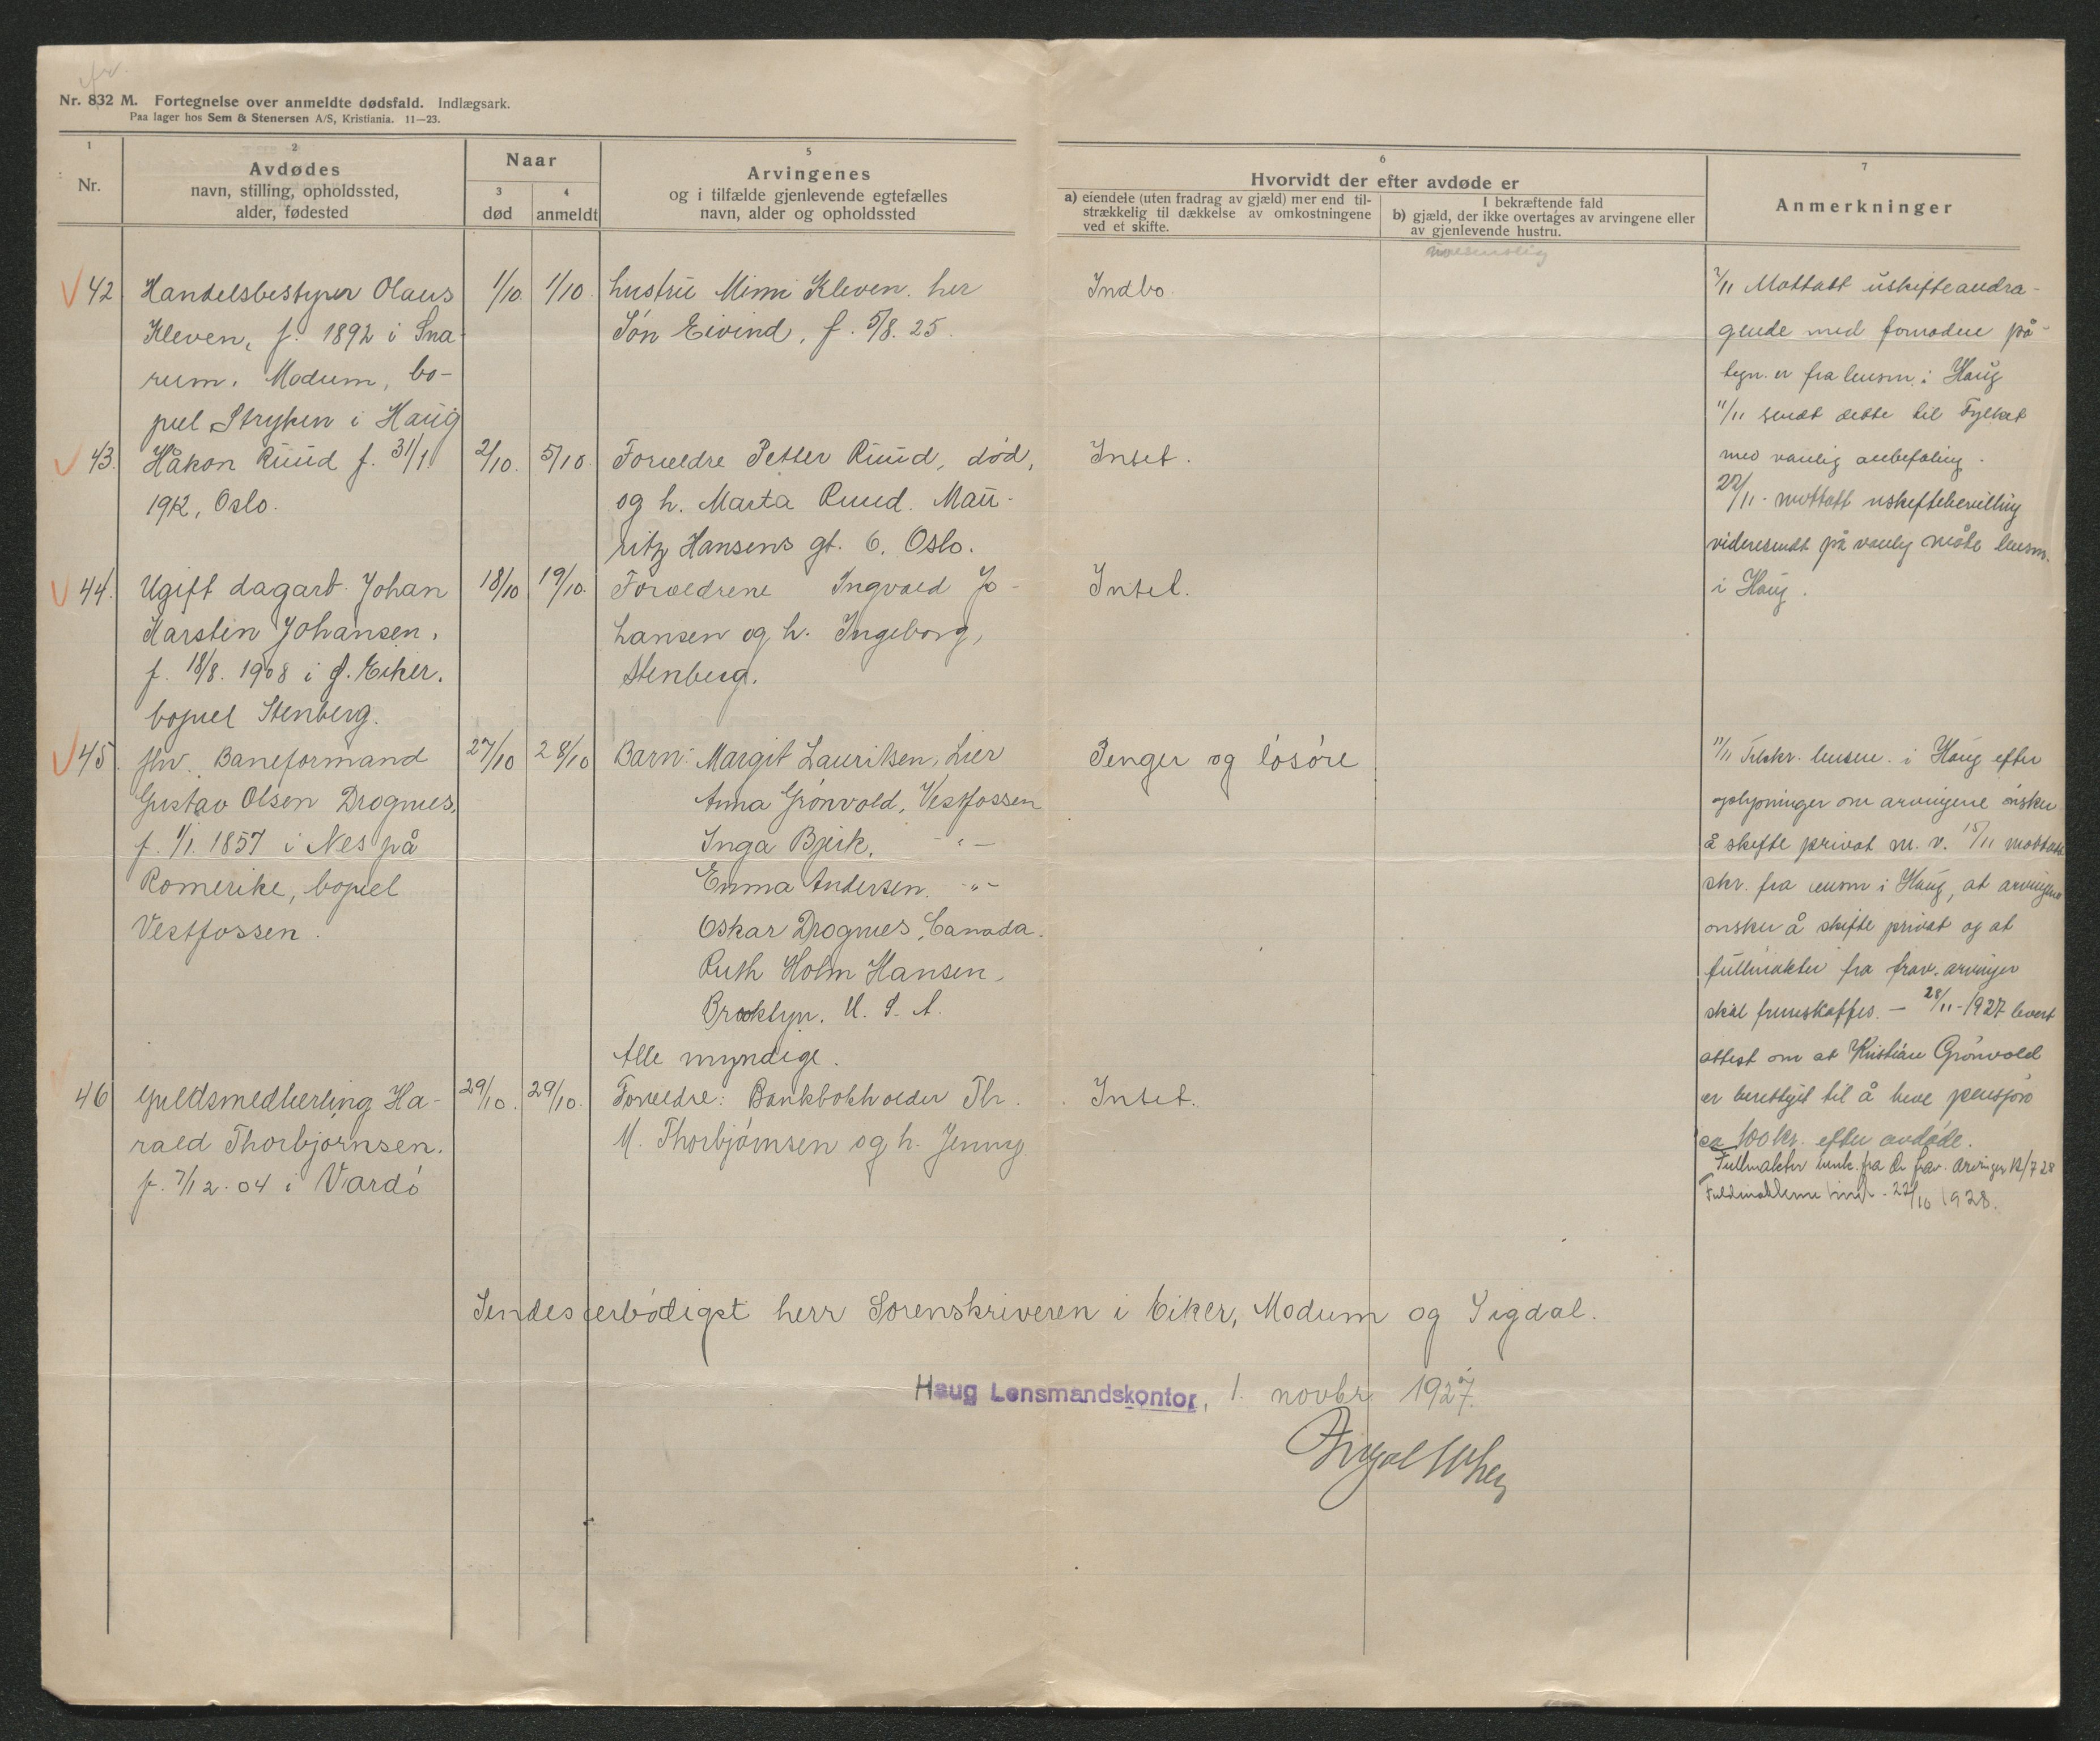 Nr. 832 M. Fortegnelse over anmeldte dødsfald. Indlægsark.
Paa lager hos Sem & Stenersen A/S, Kristiania. 11—23.
1
Nr.
2
Avdødes
navn, stilling, opholdssted,
alder, fødested
Naar
3
død
4
anmeldt
5
Arvingenes
og i tilfælde gjenlevende egtefælles
navn, alder og opholdssted
6
Hvorvidt der efter avdøde er
a) eiendele (uten fradrag av gjæld) mer end til-
strækkelig til dækkelse av omkostningene
ved et skifte.
I bekræftende fald
b) gjæld, der ikke overtages av arvingene eller
av gjenlevende hustru.
7
Anmerkninger
42
Handelsbestyrer Olaus
Kleven, f. 1892 i Sna-
rum, Modum, bo-
pel Stryken i Haug
1/10.
1/10.
hustru Mimi Kleven. her
Søn Eivind, f. 5/8. 25.
Indbo.
7/11 Mottatt uskifteandra-
gende med fornøden på-
tegn. er fra lensm. i Haug
11/11 sendt dette til Fylket
med vanlig anbefaling.
22/11 - mottatt uskiftebevilling
videresendt på vanlig måte lensm.
i Haug.
43.
Håkon Ruud f. 31/1
1912, Oslo.
2/10.
5/10.
Forældre Petter Ruud, død,
og h. Marta Ruud. Mau-
ritz Hansens gt. 6. Oslo.
Intet.
44.
Ugift dagarb. Johan
Karsten Johansen,
f. 18/8. 1908 i Ø. Eiker.
bopel Stenberg.
18/10
19/10.
Forældrene Ingvald Jo-
hansen og h. Ingeborg,
Stenberg.
Intet.
45.
fhv. Baneformand
Gustav Olsen Drognes,
f. 1/1. 1857 i Nes på
Romerike, bopel
Vestfossen.
27/10
28/10
Barn: Margit Lauritsen, Lier
Anna Grønvold, Vestfossen
Inga Bjerk, -"-
Emma Andersen. -"-
Oskar Drognes, Canada.
Ruth Holm Hansen,
Brooklyn. U. S. A.
Alle myndige.
Penger og løsøre
11/11 Tilskr. lensm. i Haug efter
oplysninger om arvingene ønsker
å skifte privat m. v. 15/11 mottatt
skr. fra lensm i Haug, at arvingene
ønsker å skifte privat og at
fullmakter fra frav. arvinger
skal fremskaffes. — 28/11 - 1927 levert
attest om at Kristian Grønvold
er berettiget til å heve pensjon
ca 100 kr. efter avdøde.
Fullmakter fra de frav. arvinger 12/7 28
Fuldmakterne 22/10 1928.
46
Guldsmedlærling Ha-
rald Thorbjørnsen.
f. 7/12. 04 i Vardø
29/10.
29/10.
Forældre: Bankbokholder Th.
M. Thorbjørnsen og h. Jenny
Intet.
Sendes ærbødigst herr Sorenskriveren i Eiker, Modum og Sigdal.
Haug Lensmandskontor, 1. novbr 1927.